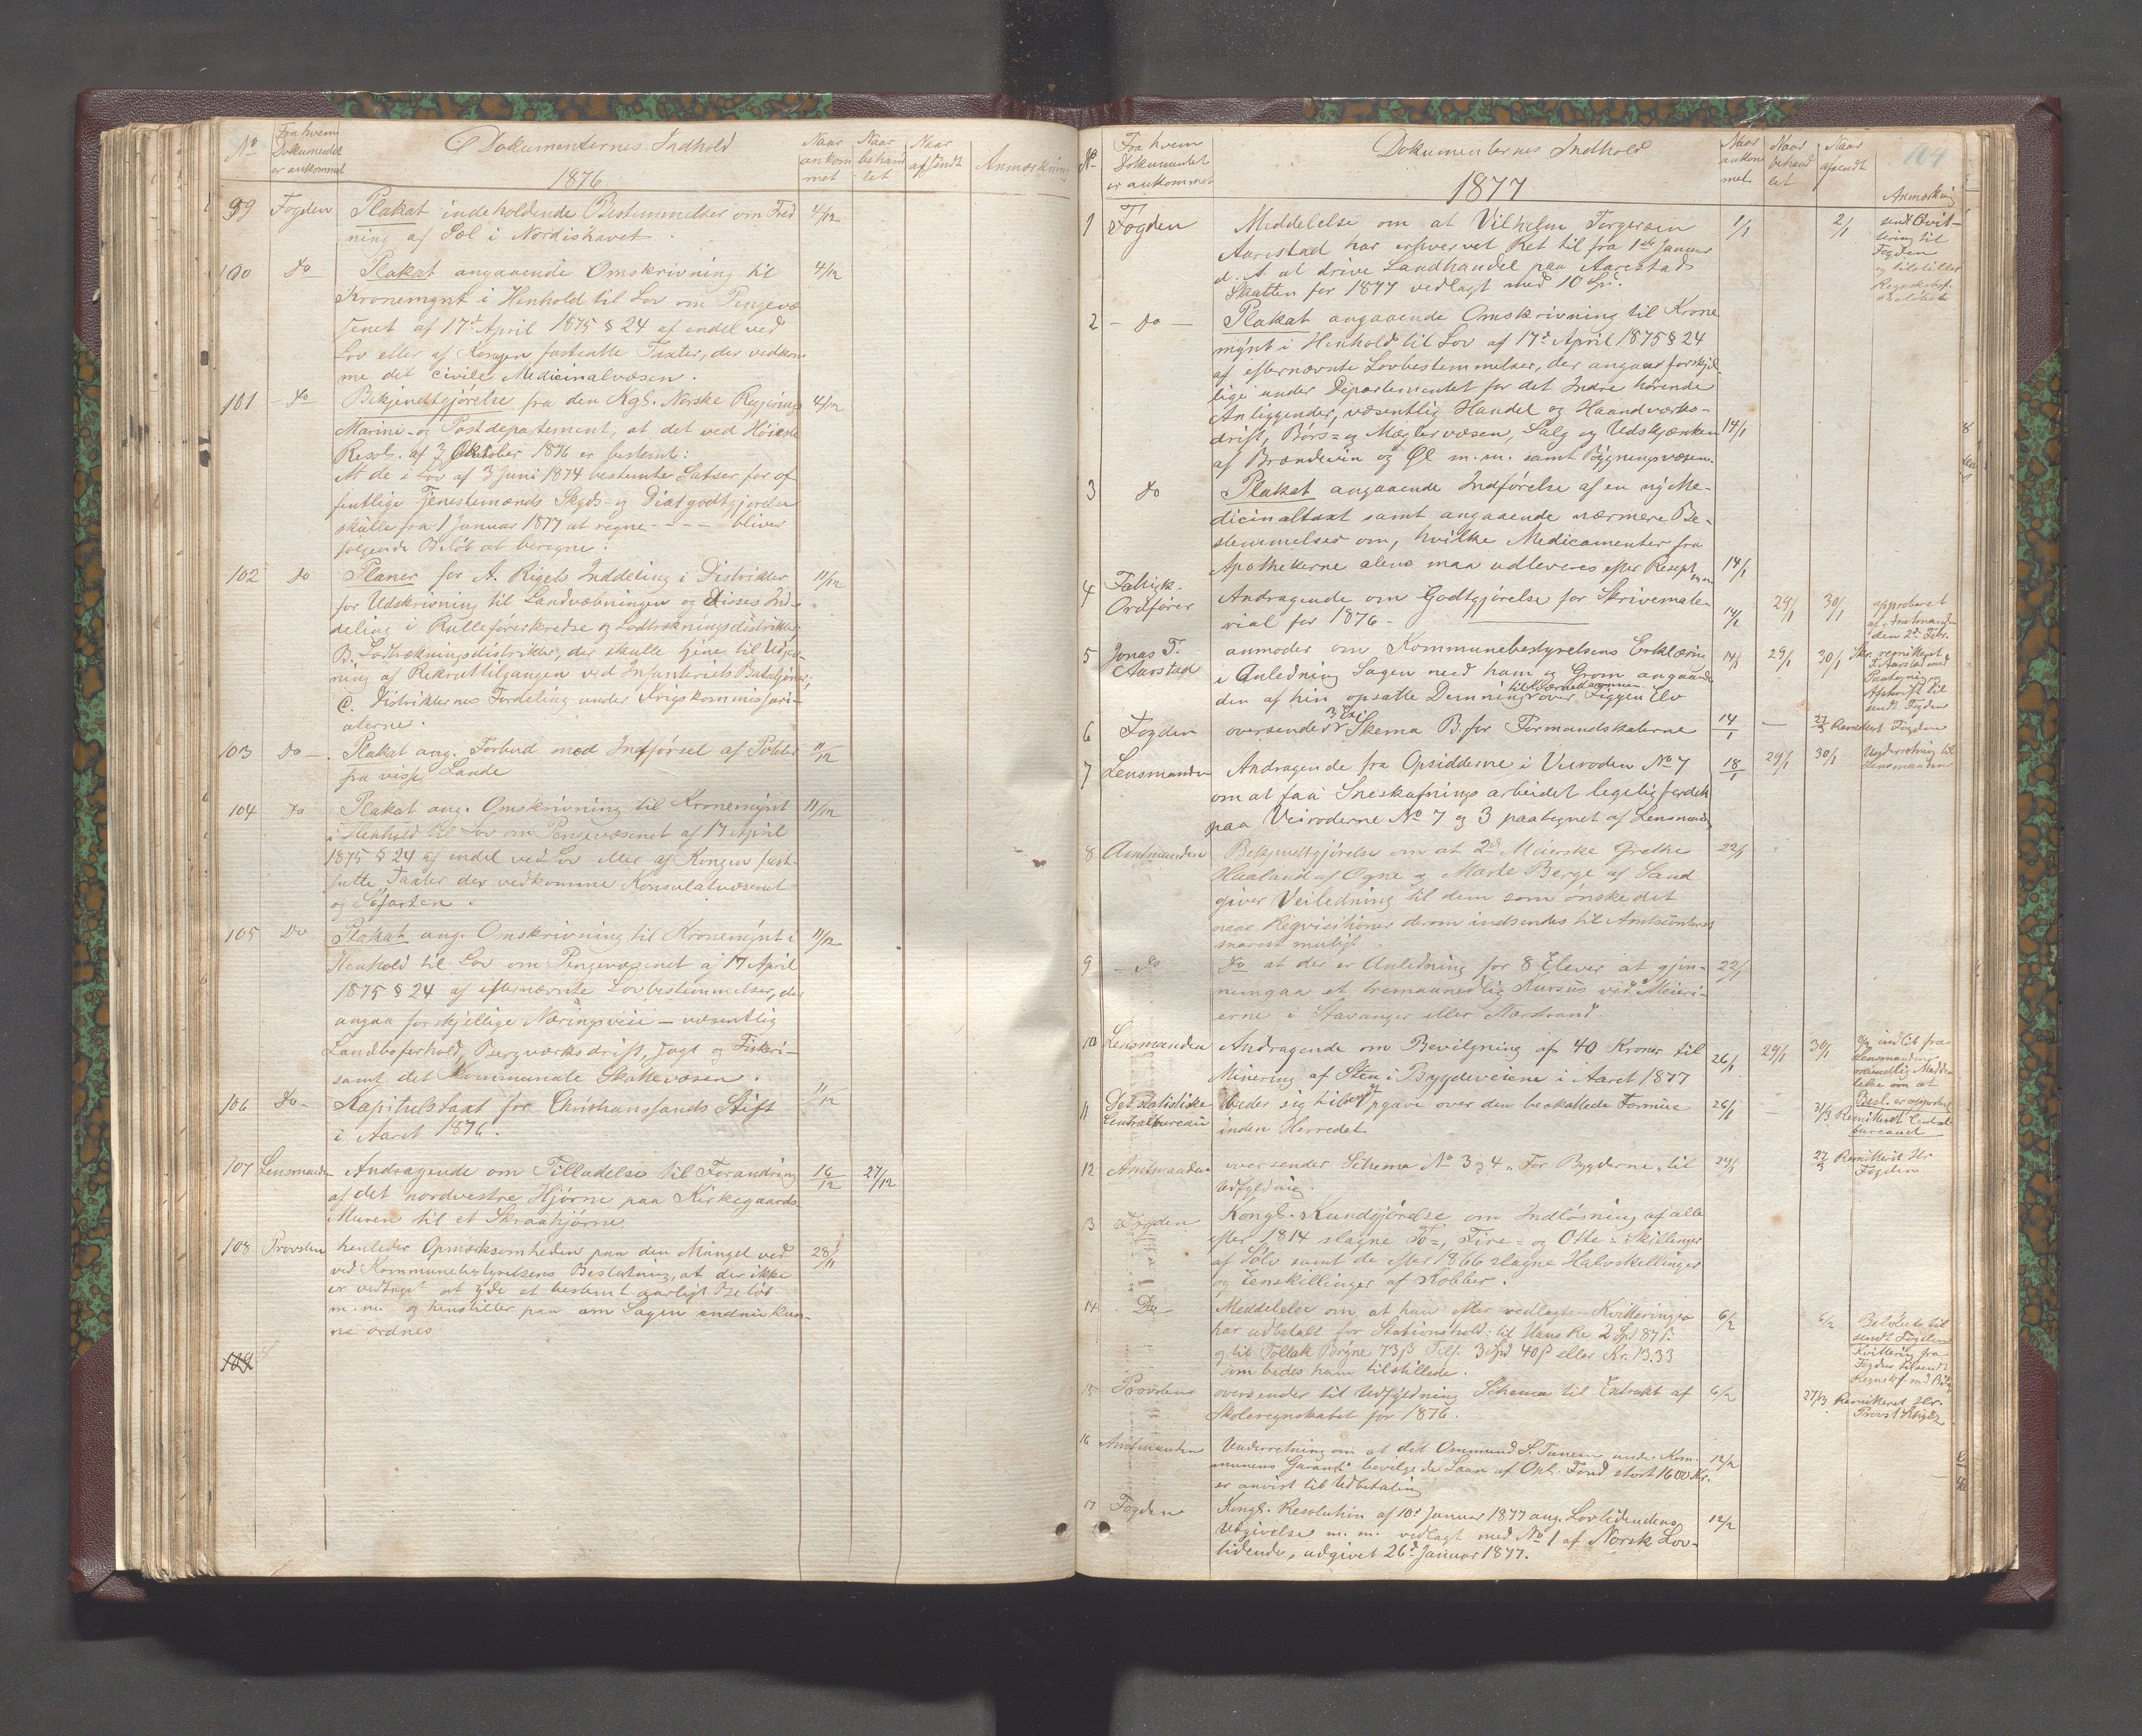 No
Fra hvem
Dokumentet
er ankommet
Dokumenternes Indhold
1876
Naar
ankom
met
Naar
behand
let
Naar
afsendt
Anmærkning
99 Fogden Plakat indeholdende Bestemmelser om Fred 4/12
ning af Sæl i Nordishavet.
100 Do Plakat angaaende Omskrivning til 4/12
Kronemynt i Henhold til Lov om Pengevæ
senet af 17d April 1875 § 24 af endel ved
Lov eller af Kongen fastsatte Taxter, der vedkom
me det civile Medicinalvæsen.
101 Do Bekjendtgjørelse fra den Kgl. Norske Regjerings 4/12
Marine- og Postdepartement, at det ved Høieste
Resol. af 3 Oktober 1876 er bestemt:
At de i Lov af 3 Juni 1874 bestemte Satser for of
fentlige Tjenestemænds Skyds- og Diætgodtgjørelse
skulle fra 1 Januar 1877 at regne - - - - bliver
følgende Beløb at beregne:
102 Do Planer for A. Rigets Inddeling i Distrikter 11/12
for Udskrivning til Landværningen og disses Ind-
deling i Rulleførerkredse og Lodtrækningsdistrikter
B. Lodtrækningsdistrikter, der skulle tjene til Udjev-
ning af Rekruttilgangen ved Infanteriets Bataljoner;
C. Distrikternes Fordeling under Krigskommissari-
aterne.
103 Do Plakat ang. Forbud mod Indførsel af Poteter 11/12
fra visse Lande
104 Do Plakat ang. Omskrivning til Kronemynt 11/12
i Henhold til Lov om Pengevæsenet af 17 April
1875 § 24 af endel ved Lov eller af Kongen fast-
satte Taxter der vedkomme Konsulatvæsenet
og Søfarten.
105 Do Plakat ang. Omskrivning til Kronemynt i 11/12
Henhold til Lov om Pengevæsenet af 17 April
1875 § 24 af efternævnte Lovbestemmelser, der
angaa forskjellige Næringsveie - væsentlig
Landboforhold, Bergværksdrift, Jagt og Fiskeri-
samt det Kommunale Skattevæsen.
106 Do Kapitelstaxt for Christianssands Stift 11/12
i Aaret 1876.
107 Lensmanden Andragende om Tilladelse til Forandring 16/12 27/12
af det nordvestre Hjørne paa Kirkegaards
Muren til et Skraahjørne
108 Provsten henleder Opmærksomheden paa den Mangel ved 28/11
ved Kommunebestyrelsens Beslutning, at der ikke
er vedtaget at yde et bestemt aarligt Beløb
m.m. og henstiller paa om Sagen endnu kun-
ne ordnes
109
No
Fra hvem
Dokumentet
er ankommet
Dokumenternes Indhold
1877
Naar
ankom
met
Naar
behand
let
Naar
afsendt
104
Anmærkning
1 Fogden Meddelelse om at Vilhelm Torgersen 1/1 2/1 sendt Qvit-
Aarestad har erhvervet Ret til fra 1ste Januar tering til
d. A at drive Landhandel paa Aarestad Fogden
Skatten for 1877 vedlagt med 10 Spd. og tilstiller
Regnskabsf.
Beløbet
2 Do Plakat angaaende Omskrivning til Krone
mynt i Henhold til Lov af 17d April 1875 § 24
af efternævnte Lovbestemmelser, der angaar forskjel-
lige under Departementet for det Indre hørende
Anliggender, væsentlig Handel og Haandværks-
drift, Børs- og Mæglervæsen, Salg og Udskjænkning 14/1
af Brændevin og Øl m.m. samt Bygningsvæsen.
3 Do Plakat angaaende Indførelse af en ny Me-
dicinaltaxt samt angaaende nærmere Be-
stemmelser om, hvilke Medicamenter fra
Apothekerne alene maa udleveres efter Recept 14/1
4 Fattigk. Andragende om Godtgjørelse for Skrivemate- 14/1 29/1 30/1 approberet
Ordfører rial for 1876 - af Amtmanden
den 2d Febr.
5 Jonas T. anmoder om Kommunebestyrelsens Erklæring 14/1 29/1 30/1
Aarstad i Anledning Sagen med ham og Grom angaaende
den af hin opsatte Demning til Kværnedammen over Figgen Elv
Paategning
Afskrift til
sendt Fogden
6 Fogden oversender 3 Ex Skema B. for Formandskaberne 14/1 — 27/3 Remitteret Fogden
7 Lensmanden Andragende fra Opsidderne i Veiroden No 7 18/1 29/1 30/1 Underretning til
om at faa Sneskufningsarbeidet ligelig fordelt Lensmanden
paa Veiroderne No 7 og 3 paategnet af Lensmand
8 Amtmanden Bekjendtgjørelse om at 2de Meierske Grethe 22/1
Haaland af Ogne og Marte Berge af Sand
giver Veiledning til dem som ønske det
naar Reqvisitioner derom indsendes til Amtscontoret
snarest muligt.
9 Do Do at der er Anledning for 8 Elever at gjen- 22/1
nemgaa et tremaanedlig Kursus ved Meieri-
erne i Stavanger eller Nærstrand.
10 Lensmanden Andragende om Bevilgning af 40 Kroner til 26/1 29/1 30/1 indløb fra
Minering af Sten i Bygdeveiene i Aaret 1877 Lensmanden
mundtlig Medde
lelse om at
Besl. er approberet
11 Det statistiske beder sig tilsendt Opgave over den beskattede Formue 26/1 — 31/3 Remitteret Central-
Centralbureau inden Herredet bureauet
12 Amtmanden oversender Schema No 3 og 4 "For Bygderne" til 29/1 27/3 Remitteret Hr
Udfyldning. Fogden
13 Fogden Kongl. Kundgjørelse om Indløsning af alle
efter 1814 slagne To-, Fire- og Otte-Skillinger
af Sølv samt de efter 1866 slagne Halvskillinger
og Eenskillinger af Kobber.
14 Do Meddelelse om at han efter vedlagte Kvitteringer 6/2 6/2 Beløbet til
har udbetalt for Stationshold: til Hans Re 2 Spd 87 β sendt Fogden
og til Tollak Bryne 73 β Tils. 3 Spd 40 β eller Kr. 13.33 Kvittering fra
som bedes ham tilstillede. Fogden tilsendt
Regnskf. med Bilag
15 Provsten oversender til Udfyldning Schema til Extrakt af 6/2 27/3 Remitteret Hr.
Skoleregnskabet for 1876. Provst
16 Amtmanden Underretning om at det Ommund S. Tunem under Kom- 12/2
munens Garanti bevilgede Laan af Opl. Fond stort 1600 Kr.
er anvist til Udbetaling
17 Fogden Kongl. Resolution af 10d Januar 1877 ang. Lovtidendens 12/2
Udgivelse m.m. vedlagt med No 1 af Norsk Lov-
tidende, udgivet 26d Januar 1877.